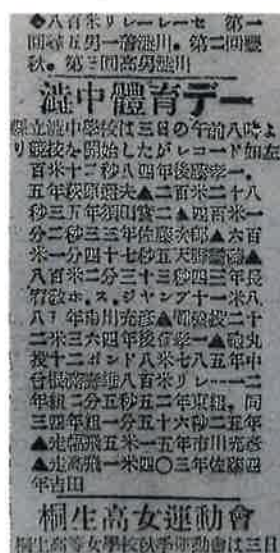 ◆八百米リレーレーセ 第一
回尋五男一著澁川。第二回豐
秋。第三回高男澁川
澁中體育デー
縣立澁中學校は三日の午前八時よ
り競技を開始したがレコード如左
百米十二秒八四年後藤幸一、
五年萩原 ▲二百米二十八
秒三五年須山 二▲四百米一
分二秒三三年佐藤次郎▲六百
米一分四十七秒五天 ▲
八百米二分三十三秒四三年長
ホ、ス、ジャンプ十一米八
八 年市川充彦▲ 投二十
二米三六四年後藤幸一▲砲丸
投十二ポンド八米七八五年中
八百米リレー一二
年組二分五秒五二年東組、同
三四年組一分五十六秒二五年
▲走幅飛五米一五年市川充彦
▲走高飛一米四〇三年佐藤四
年吉田
桐生高女運動會
桐生高等女學校秋季運動會は三日